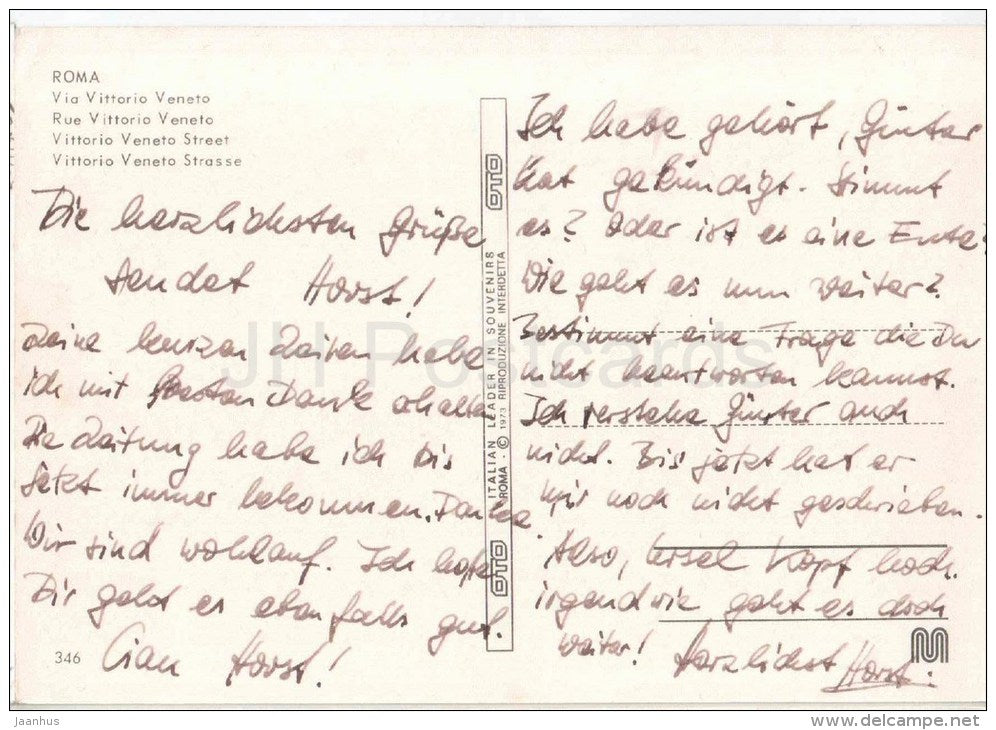 ROMA
Via Vittorio Veneto
Rue Vittorio Veneto
Vittorio Veneto Street
Vittorio Veneto Strasse
Die herzlichsten Grüße
sendet Horst!
Deine kurzen Zeilen habe
ich mit besten Dank erhalten
Die Zeitung habe ich bis
jetzt immer bekommen. Danke
Wir sind wohlauf. Ich hoffe
Dir geht es ebenfalls gut.
Ciau Horst!
346
OTO
ITALIAN LEADER IN SOUVENIRS
ROMA - © 1973 RIPRODUZIONE INTERDETTA
OTO
Ich habe gehört, Günter
hat gekündigt. Stimmt
es? Oder ist es eine Ente?
Wie geht es nun weiter?
Bestimmt eine Frage die Du
nicht beantworten kannst.
Ich verstehe Günter auch
nicht. Bis jetzt hat er
mir noch nicht geschrieben.
Also, Ursel Kopf hoch.
irgendwie geht es doch
weiter! Herzlichst Horst.
M
JH Postcards
Jaanhus
www.delcampe.net